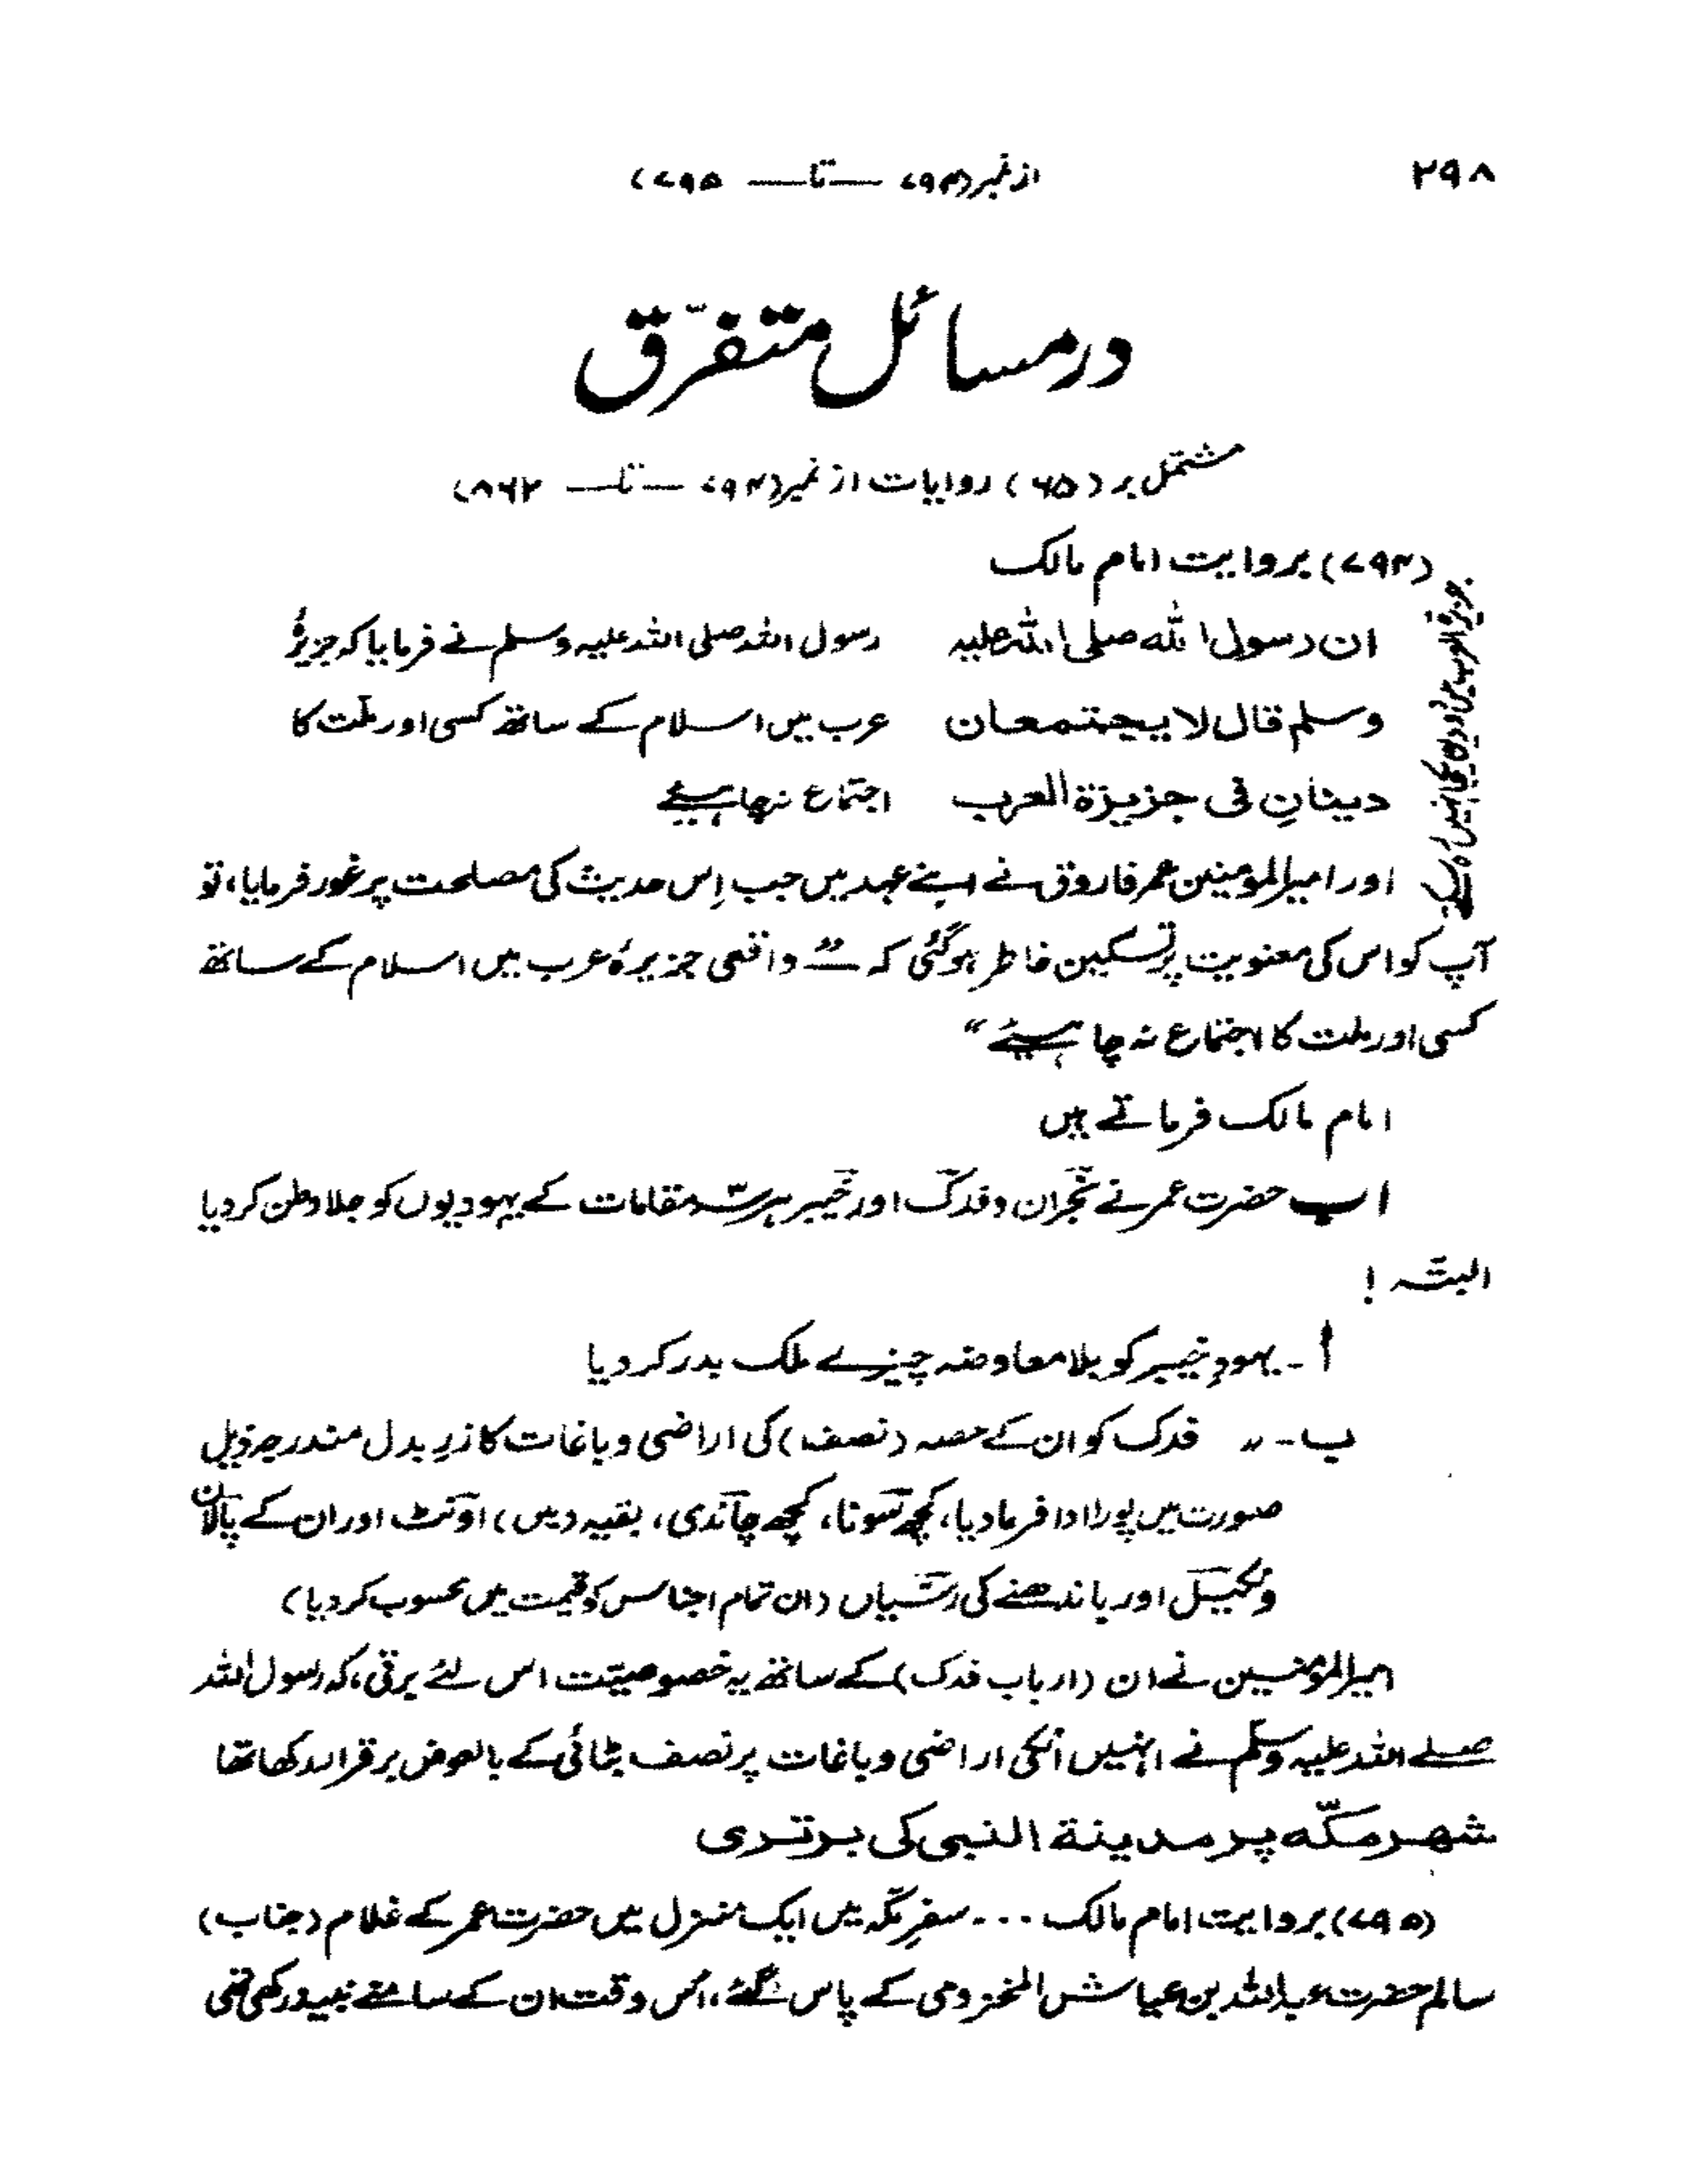 ۲۹۸
از نمبر (۷۹۴ — تا — ۷۹۵)
در مسائل متفرّق
مشتمل بر (۶۵) روایات از نمبر (۷۹۴ — تا — ۸۶۲)
(۷۹۴) بروایت امام مالک
ان رسول الله صلی الله علیه رسول اللہ صلی اللہ علیہ وسلم نے فرمایا کہ جزیرۂ
وسلم قال لا یجتمعان عرب میں اسلام کے ساتھ کسی اور ملّت کا
دینانِ فی جزیزة العرب اجتماع نہ چاہیئے
اور امیر المومنین عمر فاروق نے اپنے عہد میں جب اِس حدیث کی مصلحت پر غور فرمایا، تو
آپ کو اس کی معنویت پر تسکین خاطر ہو گئی کہ — "واقعی جزیرۂ عرب میں اسلام کے ساتھ
کسی اور ملت کا اجتماع نہ چاہیئے"
امام مالک فرماتے ہیں
اب حضرت عمر نے نجران و فدک اور خیبر ہر سہ مقامات کے یہودیوں کو جلا وطن کر دیا
البتّہ !
أ - یہودِ خیبر کو بلا معاوضہ چیزے ملک بدر کر دیا
ب - ،، فدک کو ان کے حصہ (نصف) کی اراضی و باغات کا زرِ بدل مندرجہ ذیل
صورت میں پورا ادا فرما دیا، کچھ سونا، کچھ چاندی، بقیہ (میں) اونٹ اور ان کے پالان
و نکیل اور باندھنے کی رسّیاں (ان تمام اجناس کو قیمت میں محسوب کر دیا)
امیر المومنین نے ان (ارباب فدک) کے ساتھ یہ خصوصیّت اس لئے برتی، کہ رسول اللہ
صلے اللہ علیہ وسلم نے انہیں انکی اراضی و باغات پر نصف بٹائی کے بالعوض برقرار رکھا تھا
شہر مکّہ پر مدینة النبی کی برتری
(۷۹۵) بروایت امام مالک ... سفرِ مکّہ میں ایک منزل میں حضرت عمر کے غلام (جناب)
سالم حضرت عبد اللہ بن عیاش المخزومی کے پاس گئے، اُس وقت ان کے سامنے نبیذ رکھی تھی